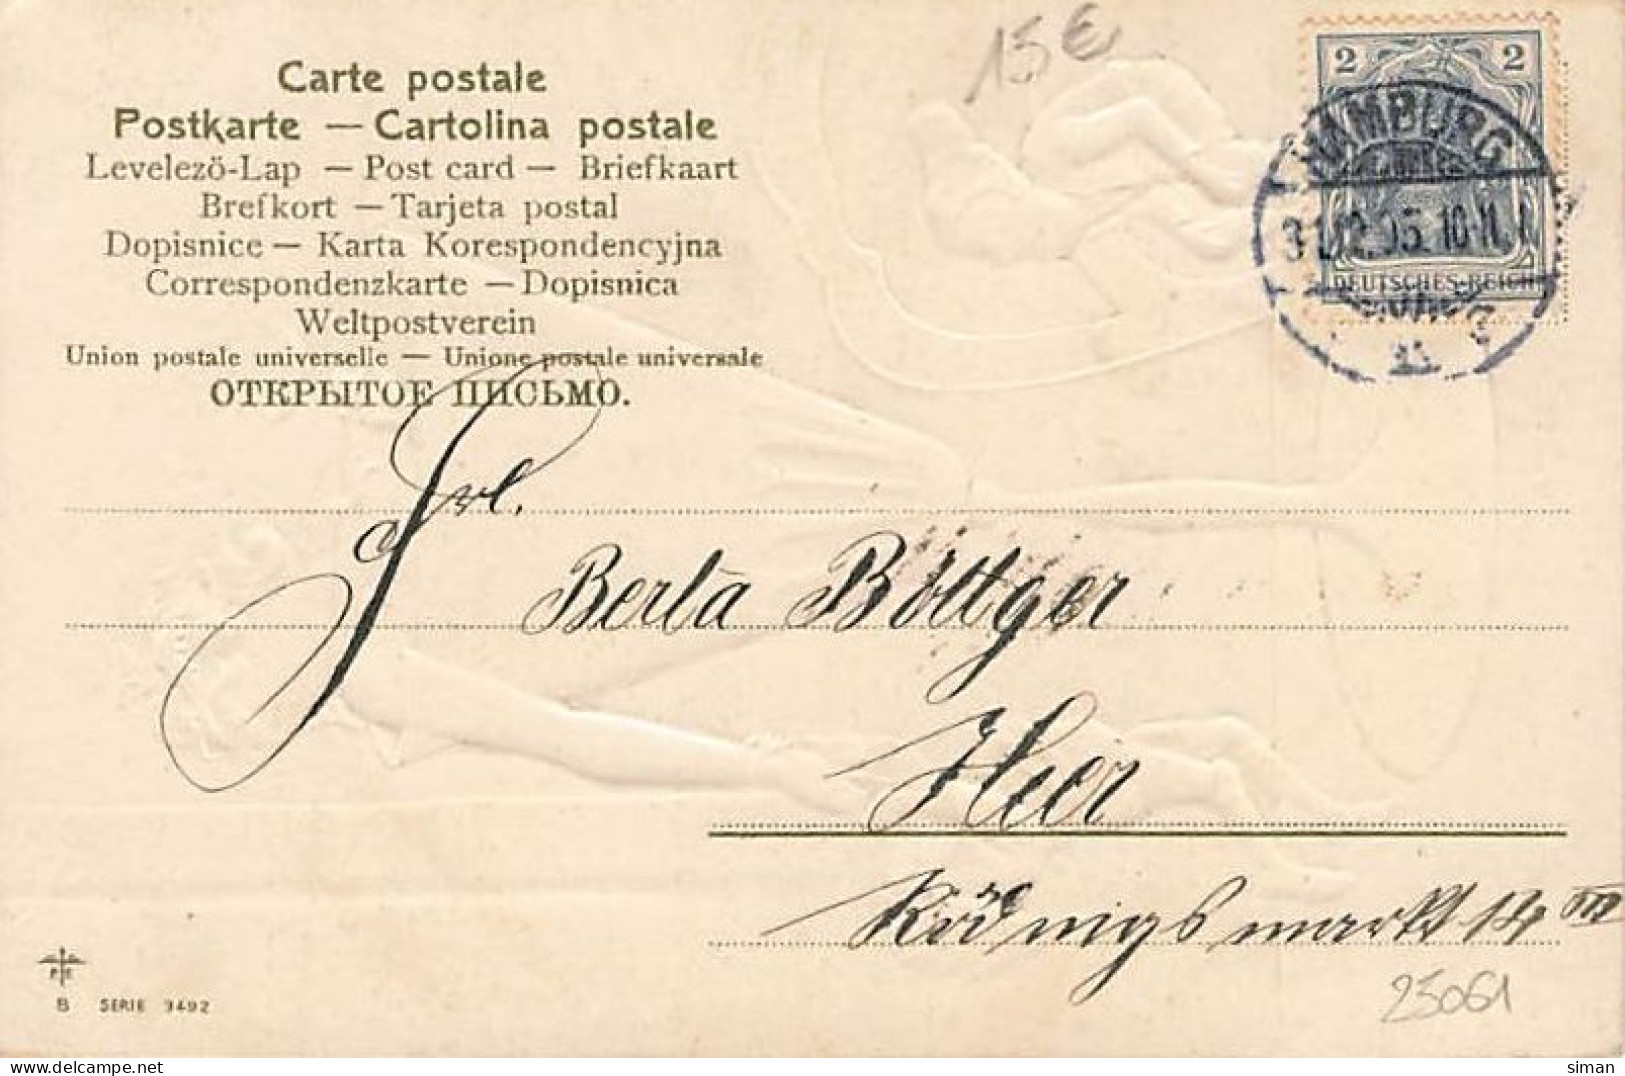 15 €
Carte postale
Postkarte — Cartolina postale
Levelező-Lap — Post card — Briefkaart
Brefkort — Tarjeta postal
Dopisnice — Karta Korespondencyjna
Correspondenzkarte — Dopisnica
Weltpostverein
Union postale universelle — Unione postale universale
ОТКРЫТОЕ ПИСЬМО.
2 2
HAMBURG
31.12.05. 10-11
DEUTSCHES-REICH
Frl.
Berta Böttger
Hier
14 III
25061
P E
B SERIE 3492
siman